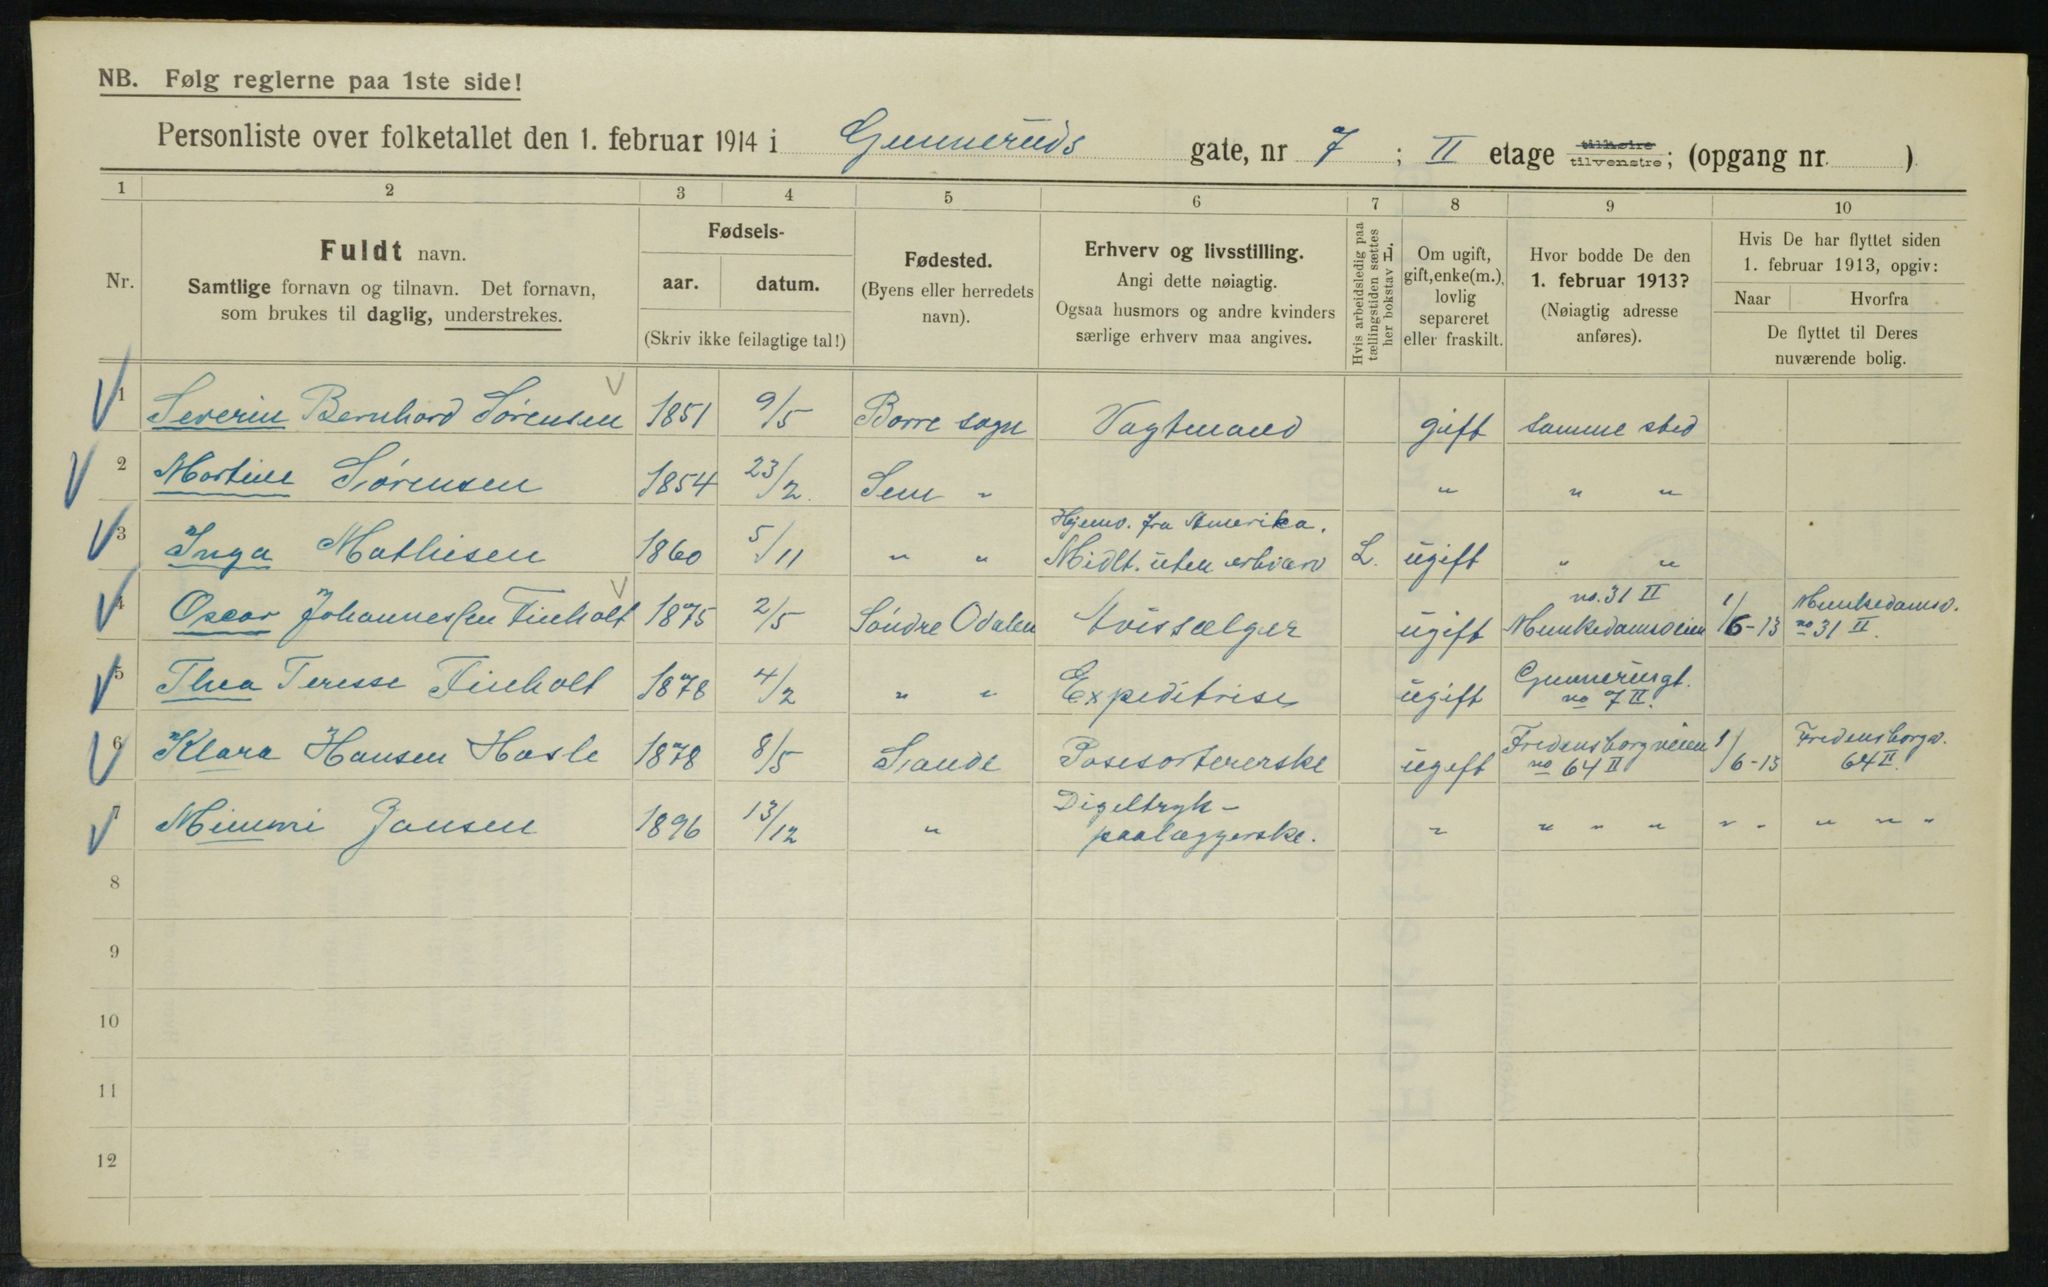 NB. Følg reglerne paa 1ste side!
Personliste over folketallet den 1. februar 1914 i Gunneruds gate, nr 7 ; II etage tilhøire tilvenstre; (opgang nr. )
1 2 3 4 5 6 7 8 9 10
Nr.
Fuldt navn.
Samtlige fornavn og tilnavn. Det fornavn,
som brukes til daglig, understrekes.
Fødsels-
aar. datum.
(Skriv ikke feilagtige tal!)
Fødested.
(Byens eller herredets
navn).
Erhverv og livsstilling.
Angi dette nøiagtig.
Ogsaa husmors og andre kvinders
særlige erhverv maa angives.
Hvis arbeidsledig paa
tællingstiden sættes
her bokstav L.
Om ugift,
gift, enke(m.),
lovlig
separeret
eller fraskilt.
Hvor bodde De den
1. februar 1913?
(Nøiagtig adresse
anføres).
Hvis De har flyttet siden
1. februar 1913, opgiv:
Naar Hvorfra
De flyttet til Deres
nuværende bolig.
1 Severin Bernhard Sørensen 1851 9/5 Borre sogn Vagtmand gift samme sted
2 Martine Sørensen 1854 23/2. Sem " " " "
3 Inga Mathisen 1860 5/11 " " Hjemv. fra Amerika.
Midlt. uten erhverv L. ugift " "
4 Oscar Johannessen Fineholt 1875 2/5 Søndre Odalen Avissælger ugift no. 31 II
Munkedamsveien 1/6-13 Munkedamsv.
no 31 II.
5 Thea Teresse Fineholt 1878 4/2 " " Expeditrise ugift Gunnerusgt.
no 7 II.
6 Klara Hansen Hasle 1878 8/5 Sande Posesortererske ugift Fredensborgveien
no 64 II 1/6-13 Fredensborgv.
64 II.
7 Mimmi Jansen 1896 13/12 " Digeltryk-
paalæggerske. " " " " " " " " "
8
9
10
11
12